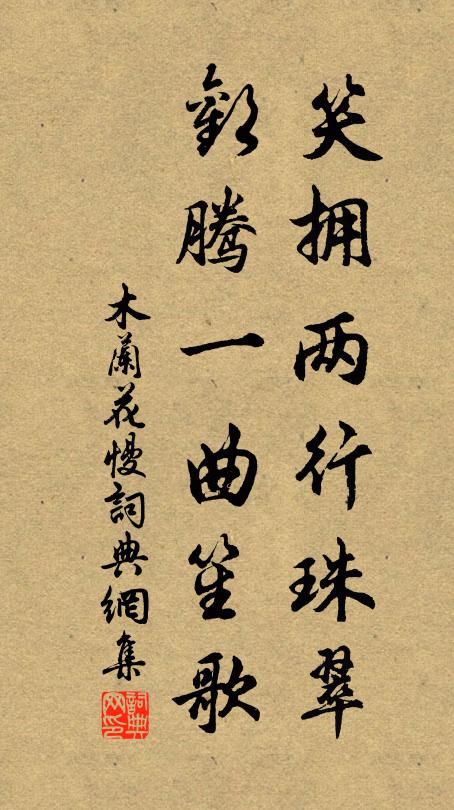 笑拥两行珠翠
歡腾一曲笙歌
木蘭花慢詞典網集
詞典网印